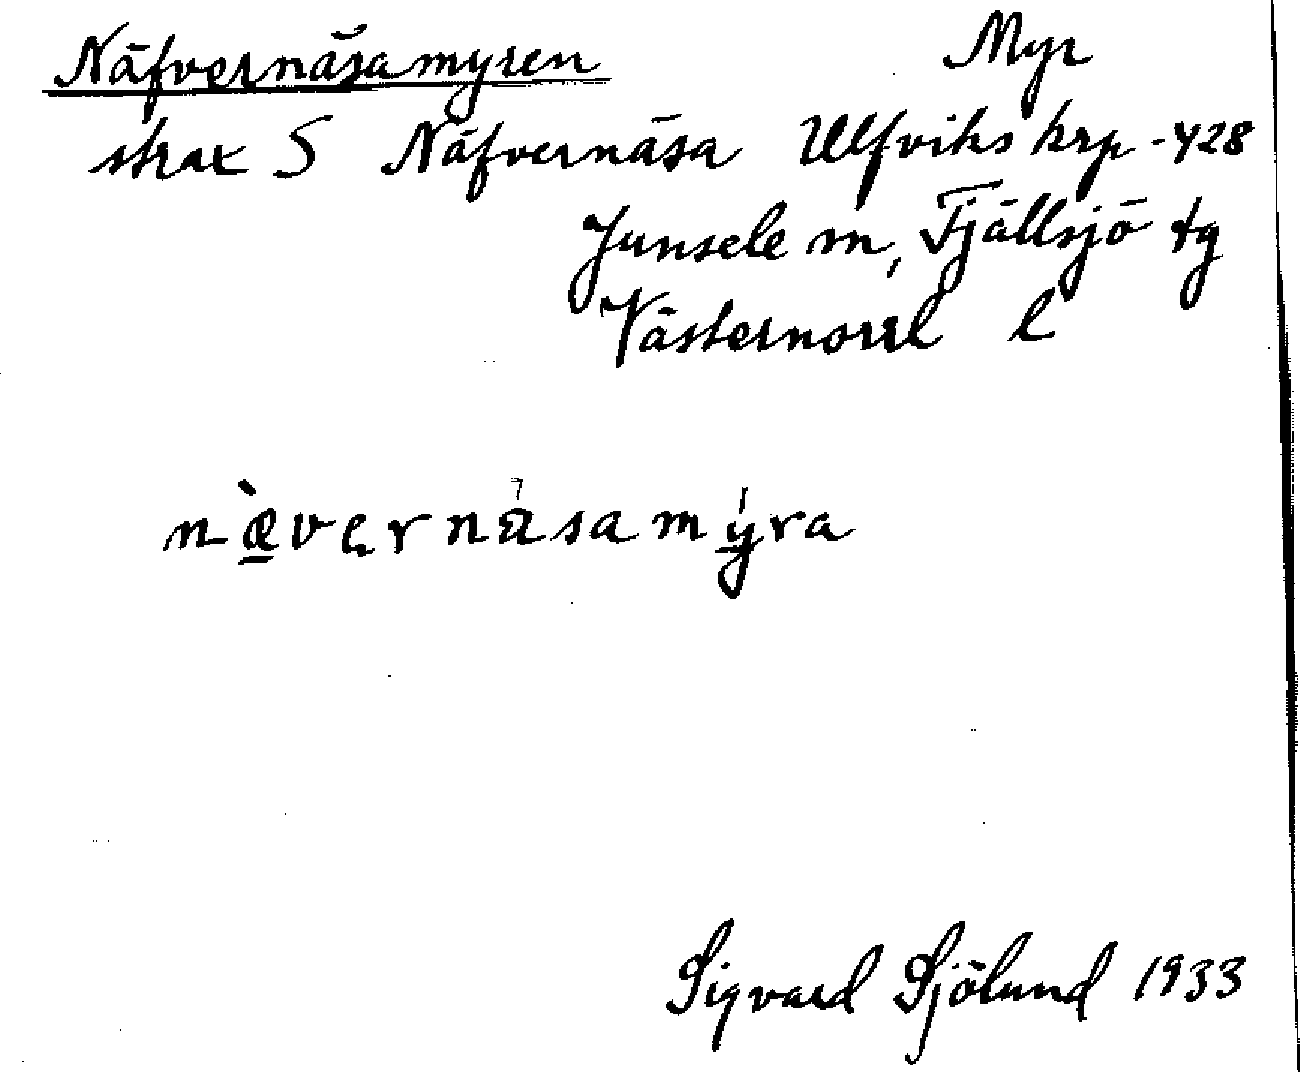 Näfvernäsamyren Myr
strax S Näfvernäsa Ulfviks krp -428
Junsele m, Fjällsjö tg
Västernorrl l
næ̀vęrnasamyra
Sigvard Sjölund 1933